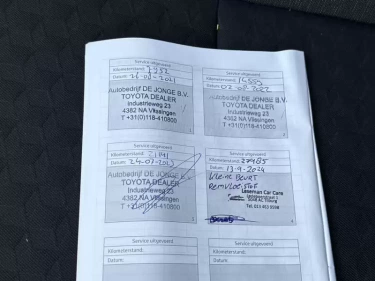 Service uitgevoerd
Kilometerstand: 7952
Datum: 26-08-2021
Autobedrijf DE JONGE B.V.
TOYOTA DEALER
Industrieweg 23
4382 NA Vlissingen
T +31(0)118-410800
Service uitgevoerd
Kilometerstand: 14559
Datum: 02-08-2022
Autobedrijf DE JONGE B.V.
TOYOTA DEALER
Industrieweg 23
4382 NA Vlissingen
T +31(0)118-410800
Service uitgevoerd
Kilometerstand:
Datum: 24-07-2023
Autobedrijf DE JONGE B.V.
TOYOTA DEALER
Industrieweg 23
4382 NA Vlissingen
T +31(0)118-410800
Service uitgevoerd
Kilometerstand: 27985
Datum: 13-9-2024
Kleine Beurt
Remvloeistof
Car Care
Tilburg
Service uitgevoerd
Kilometerstand:
Datum:
Service uitgevoerd
Kilometerstand:
Datum: